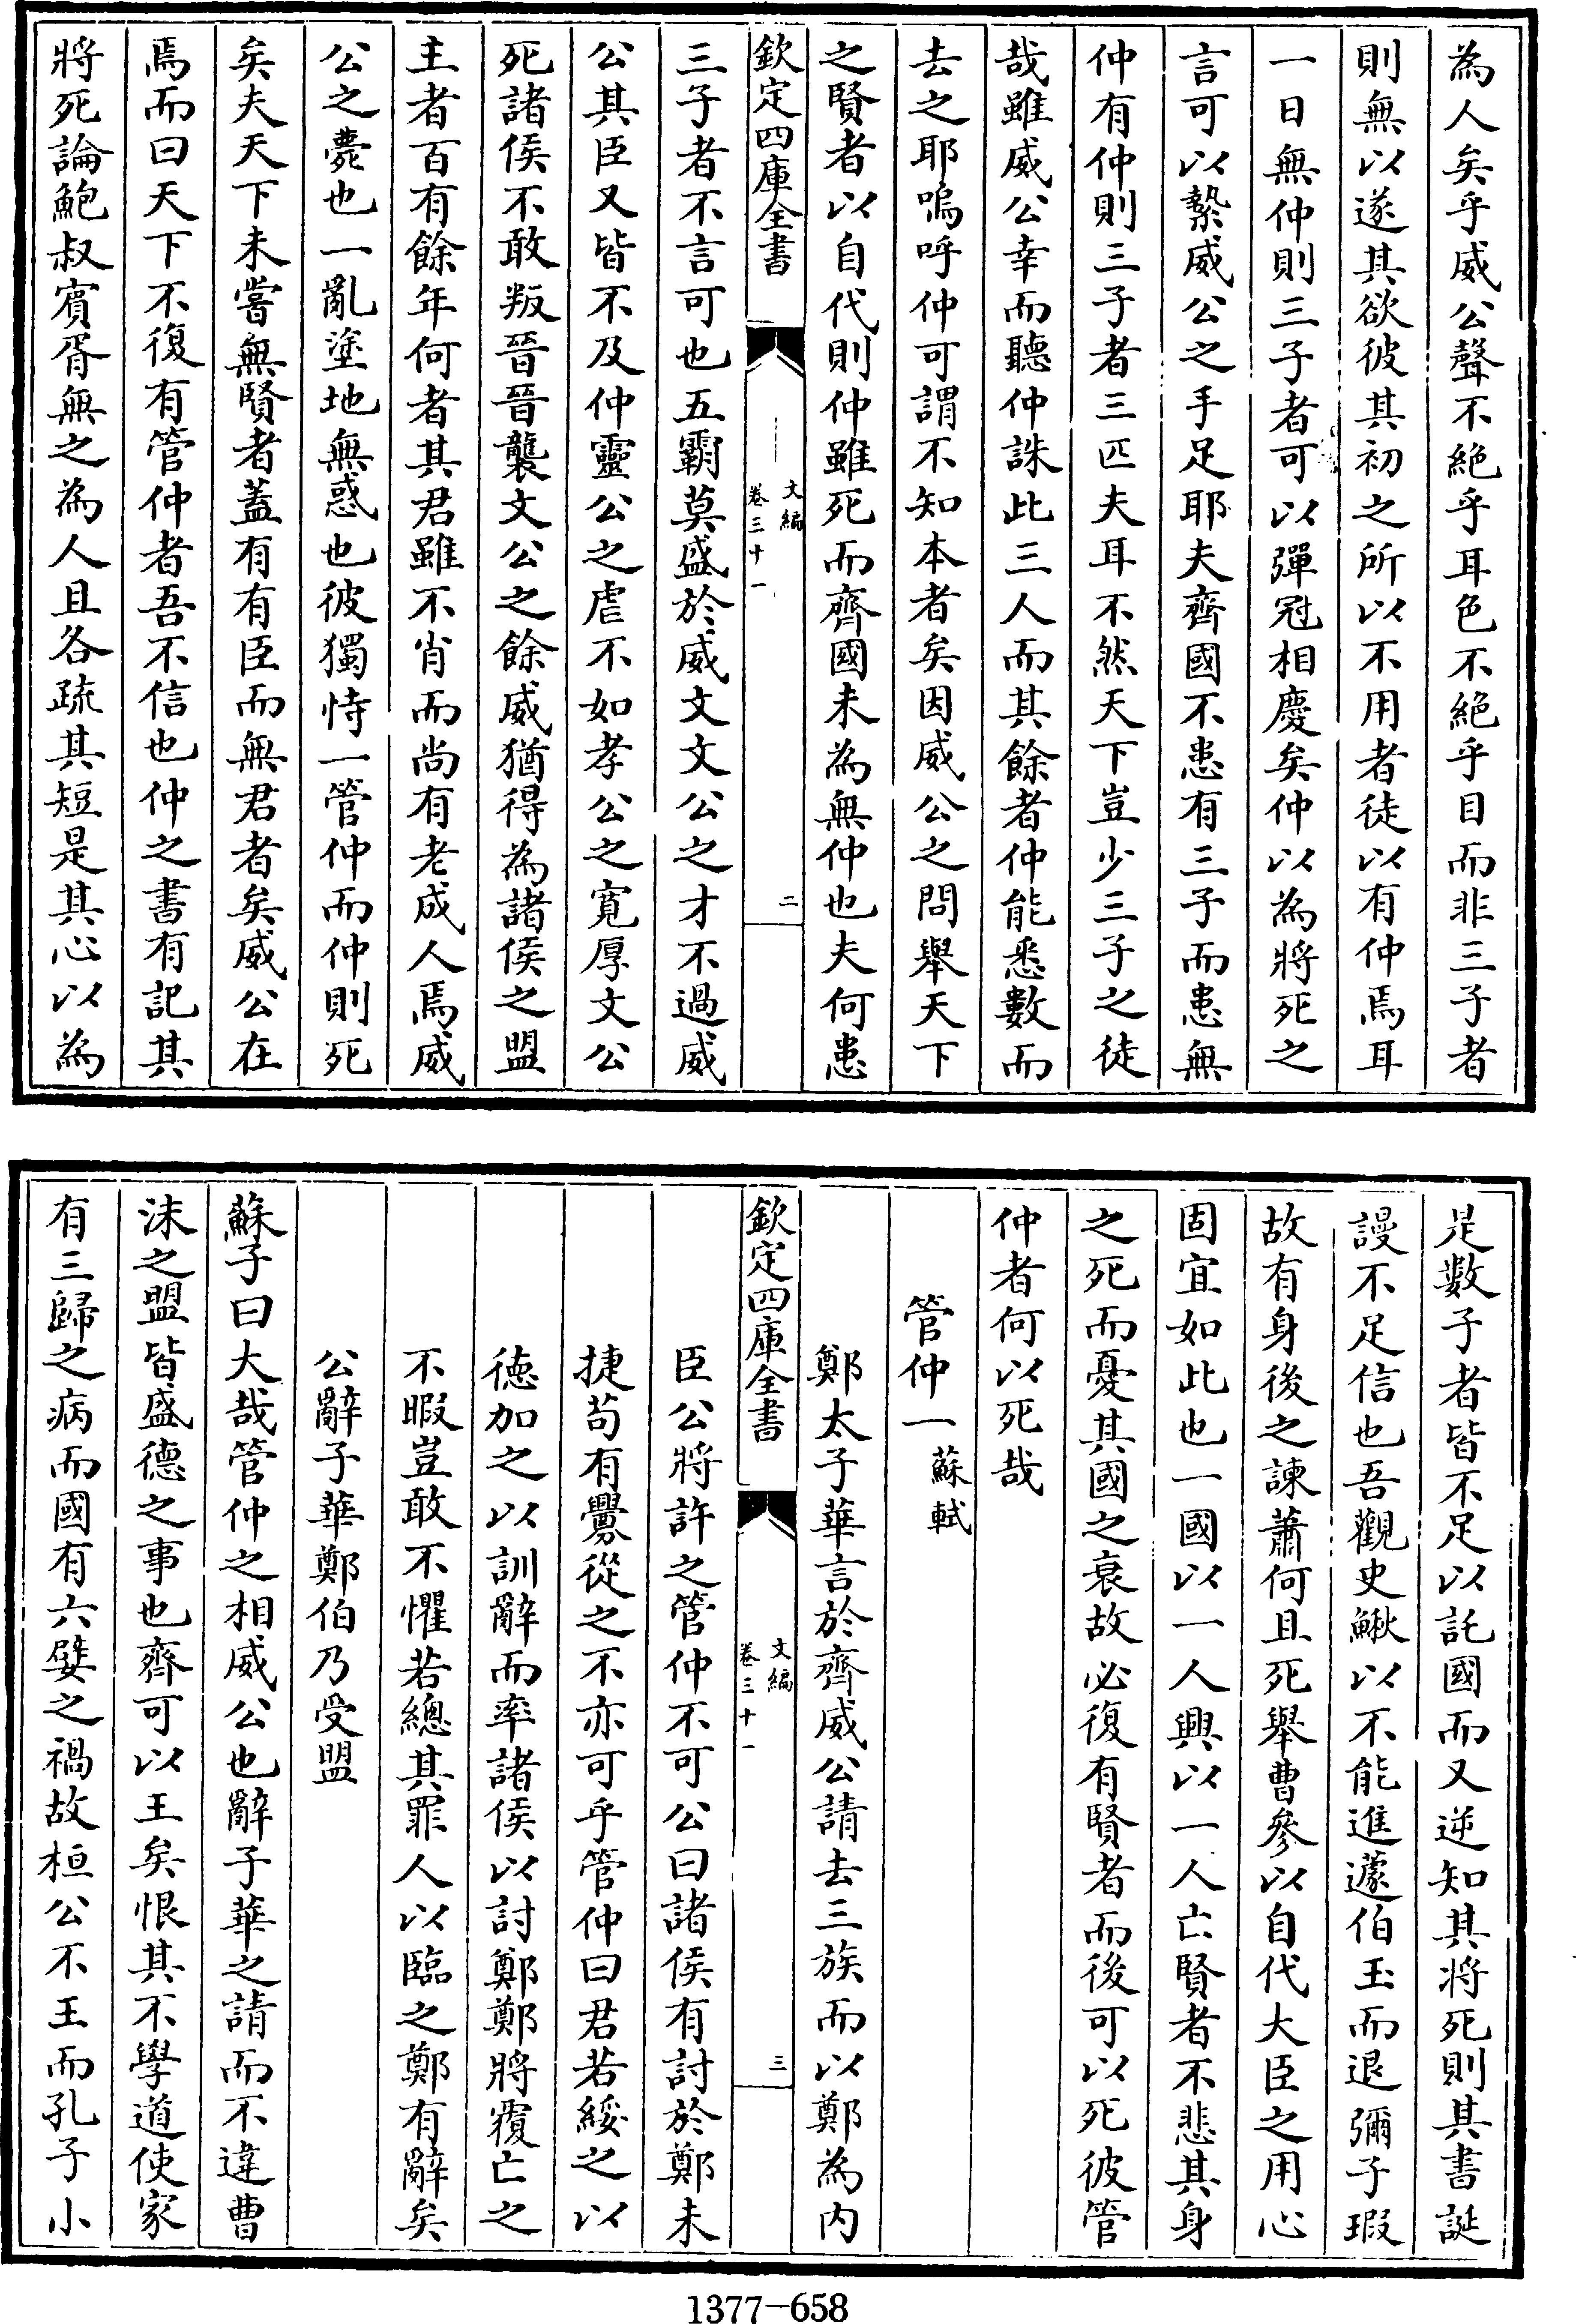 為人矣乎威公聲不絶乎耳色不絶乎目而非三子者
則無以遂其欲彼其初之所以不用者徒以有仲焉耳
一日無仲則三子者可以彈冠相慶矣仲以為將死之
言可以縶威公之手足耶夫齊國不患有三子而患無
仲有仲則三子者三匹夫耳不然天下豈少三子之徒
哉雖威公幸而聽仲誅此三人而其餘者仲能悉數而
去之耶嗚呼仲可謂不知本者矣因威公之問舉天下
之賢者以自代則仲雖死而齊國未為無仲也夫何患
欽定四庫全書
文編
卷三十一
二
三子者不言可也五霸莫盛於威文文公之才不過威
公其臣又皆不及仲靈公之虐不如孝公之寛厚文公
死諸侯不敢叛晉晉襲文公之餘威猶得為諸侯之盟
主者百有餘年何者其君雖不肖而尚有老成人焉威
公之薨也一亂塗地無惑也彼獨恃一管仲而仲則死
矣夫天下未嘗無賢者蓋有有臣而無君者矣威公在
焉而曰天下不復有管仲者吾不信也仲之書有記其
將死論鮑叔賓胥無之為人且各疏其短是其心以為
是數子者皆不足以託國而又逆知其将死則其書誕
謾不足信也吾觀史鰌以不能進蘧伯玉而退彌子瑕
故有身後之諫蕭何且死舉曹參以自代大臣之用心
固宜如此也一國以一人興以一人亡賢者不悲其身
之死而憂其國之衰故必復有賢者而後可以死彼管
仲者何以死哉
管仲一蘇軾
鄭太子華言於齊威公請去三族而以鄭為内
欽定四庫全書
文編
卷三十一
三
臣公將許之管仲不可公曰諸侯有討於鄭未
捷苟有釁從之不亦可乎管仲曰君若綏之以
德加之以訓辭而率諸侯以討鄭鄭將覆亡之
不暇豈敢不懼若總其罪人以臨之鄭有辭矣
公辭子華鄭伯乃受盟
蘇子曰大哉管仲之相威公也辭子華之請而不違曹
沫之盟皆盛德之事也齊可以王矣恨其不學道使家
有三歸之病而國有六嬖之禍故桓公不王而孔子小
1377-658